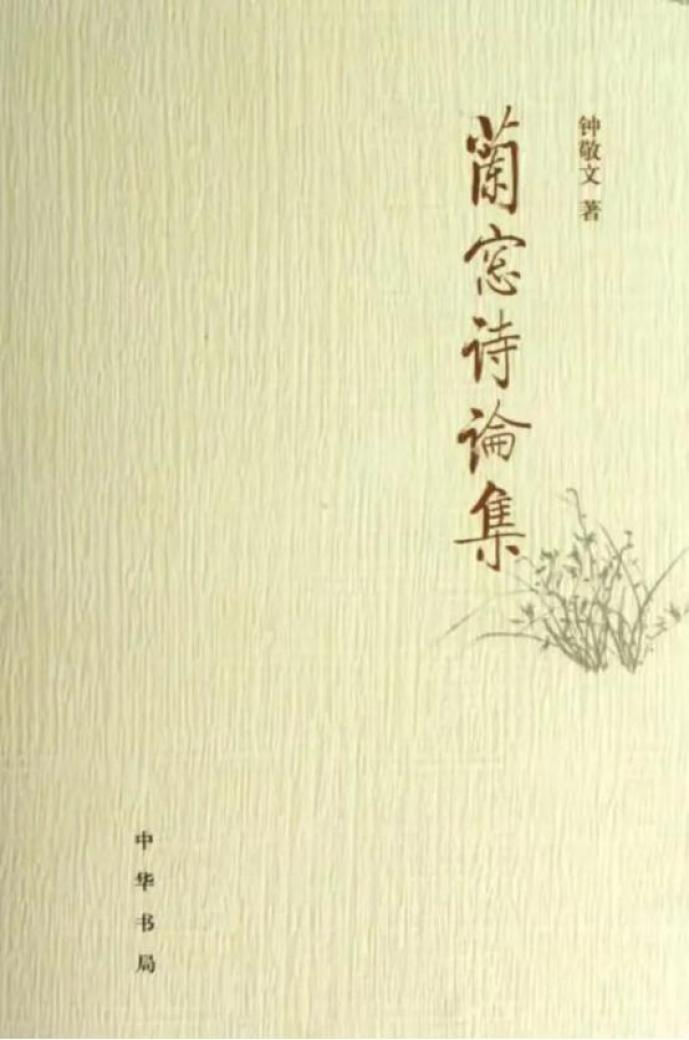 钟敬文 著
蘭窓诗论集
中华书局